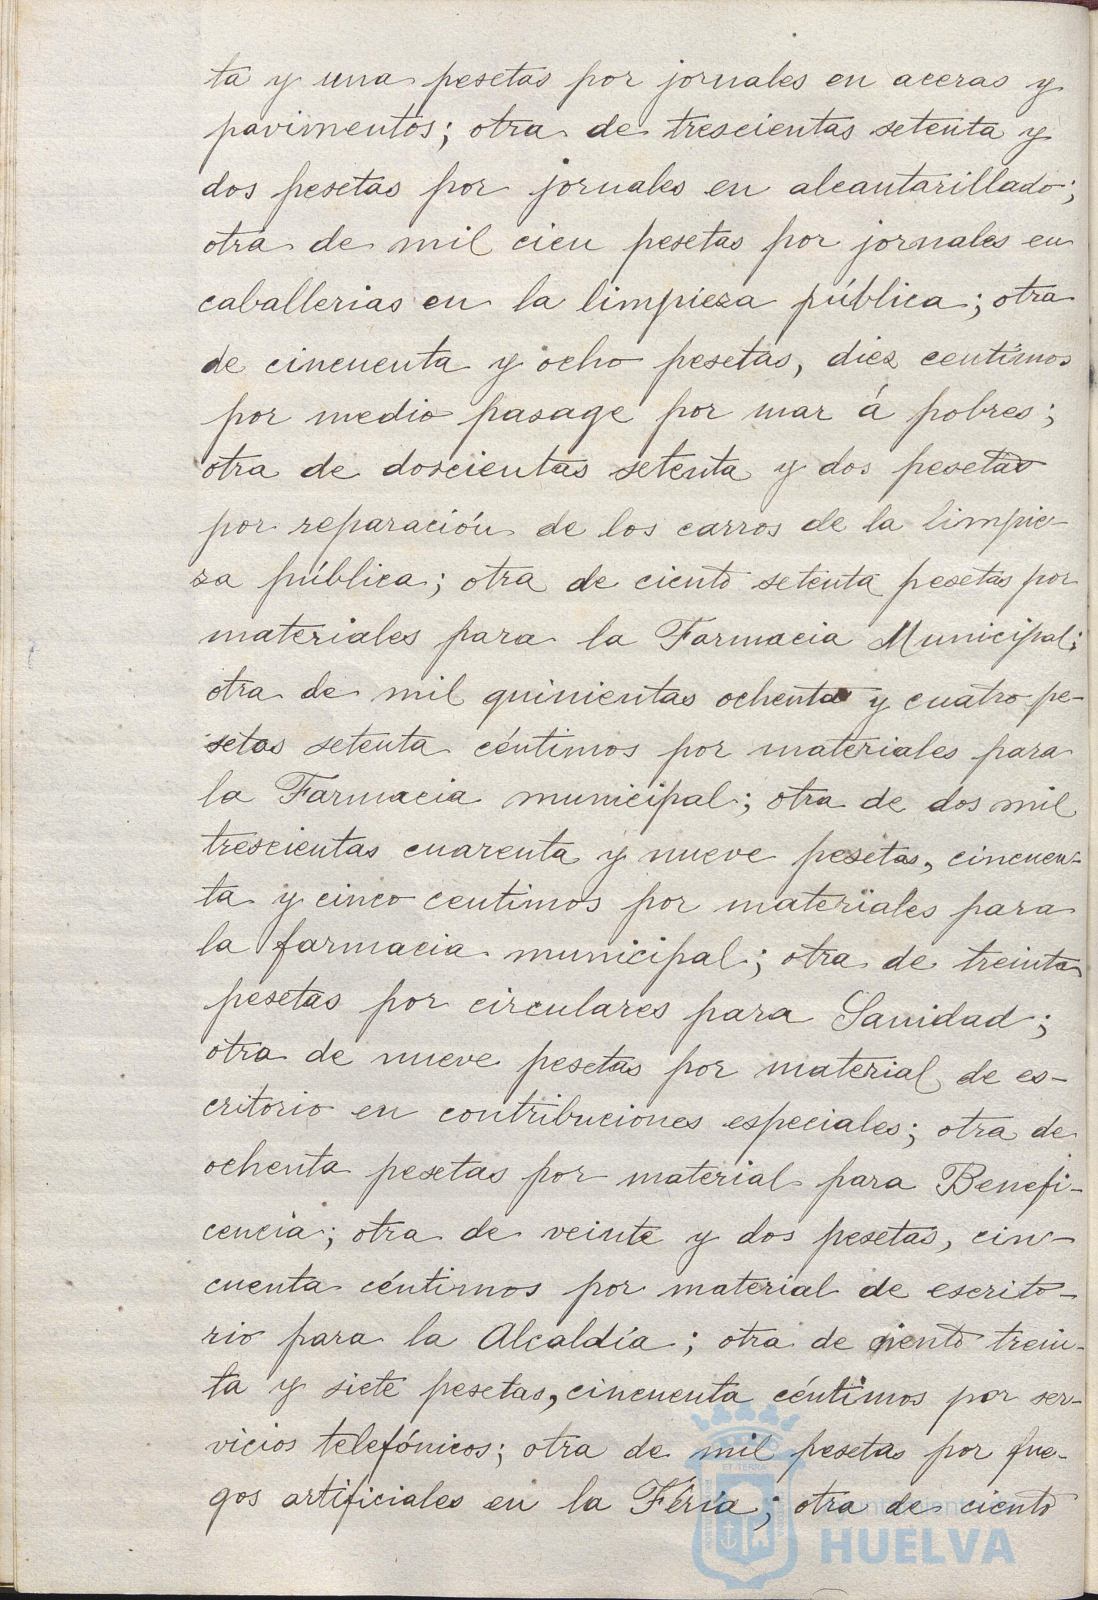 ta y una pesetas por jornales en aceras y
pavimentos; otra de trescientas setenta y
dos pesetas por jornales en alcantarillado;
otra de mil cien pesetas por jornales en
caballerias en la limpieza pública; otra
de cincuenta y ocho pesetas, diez centimos
por medio pasage por mar á pobres;
otra de doscientas setenta y dos pesetas
por reparación de los carros de la limpie-
za pública; otra de ciento setenta pesetas por
materiales para la Farmacia Municipal;
otra de mil quinientas ochenta y cuatro pe-
setas setenta céntimos por materiales para
la Farmacia municipal; otra de dos mil
trescientas cuarenta y nueve pesetas, cincuen-
ta y cinco centimos por materiales para
la farmacia municipal; otra de treinta
pesetas por circulares para Sanidad;
otra de nueve pesetas por material de es-
critorio en contribuciones especiales; otra de
ochenta pesetas por material para Benefi-
cencia; otra de veinte y dos pesetas, cin-
cuenta céntimos por material de escrito-
rio para la Alcaldía; otra de ciento trein-
ta y siete pesetas, cincuenta céntimos por ser-
vicios telefónicos; otra de mil pesetas por fue-
gos artificiales en la Féria; otra de ciento
HUELVA